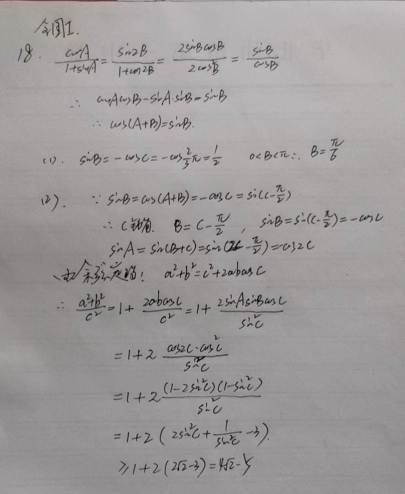 全国I.
18. cosA/(1+sinA) = sin2B/(1+cos2B) = 2sinBcosB/2cos²B = sinB/cosB
∴ cosAcosB-sinA·sinB=sinB
∴ cos(A+B)=sinB.
(1). sinB=-cosC=-cos2/3π=1/2 0<B<π ∴ B=π/6
(2). ∵ sinB=cos(A+B)=-cosC=sin(C-π/2)
∴ C钝角. B=C-π/2, sinB=sin(C-π/2)=-cosC
sinA=sin(B+C)=sin(2C-π/2)=-cos2C
由余弦定理: a²+b²=c²+2abcosC
∴ (a²+b²)/c²=1+2abcosC/c²=1+2sinAsinBcosC/sin²C
=1+2 cos2C·cos²C/sin²C
=1+2 (1-2sin²C)(1-sin²C)/sin²C
=1+2(2sin²C+1/sin²C-3).
≥1+2(2√2-3)=4√2-5